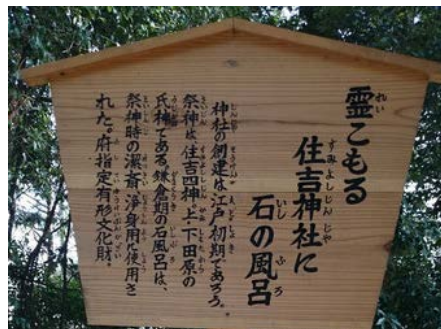 霊こもる
住吉神社に
石の風呂
神社の創建は江戸初期であろう。
祭神は、住吉四神、上・下田原の
氏神である鎌倉期の石風呂は、
祭神時の潔斎・浄身用に使用さ
れた。府指定有形文化財。